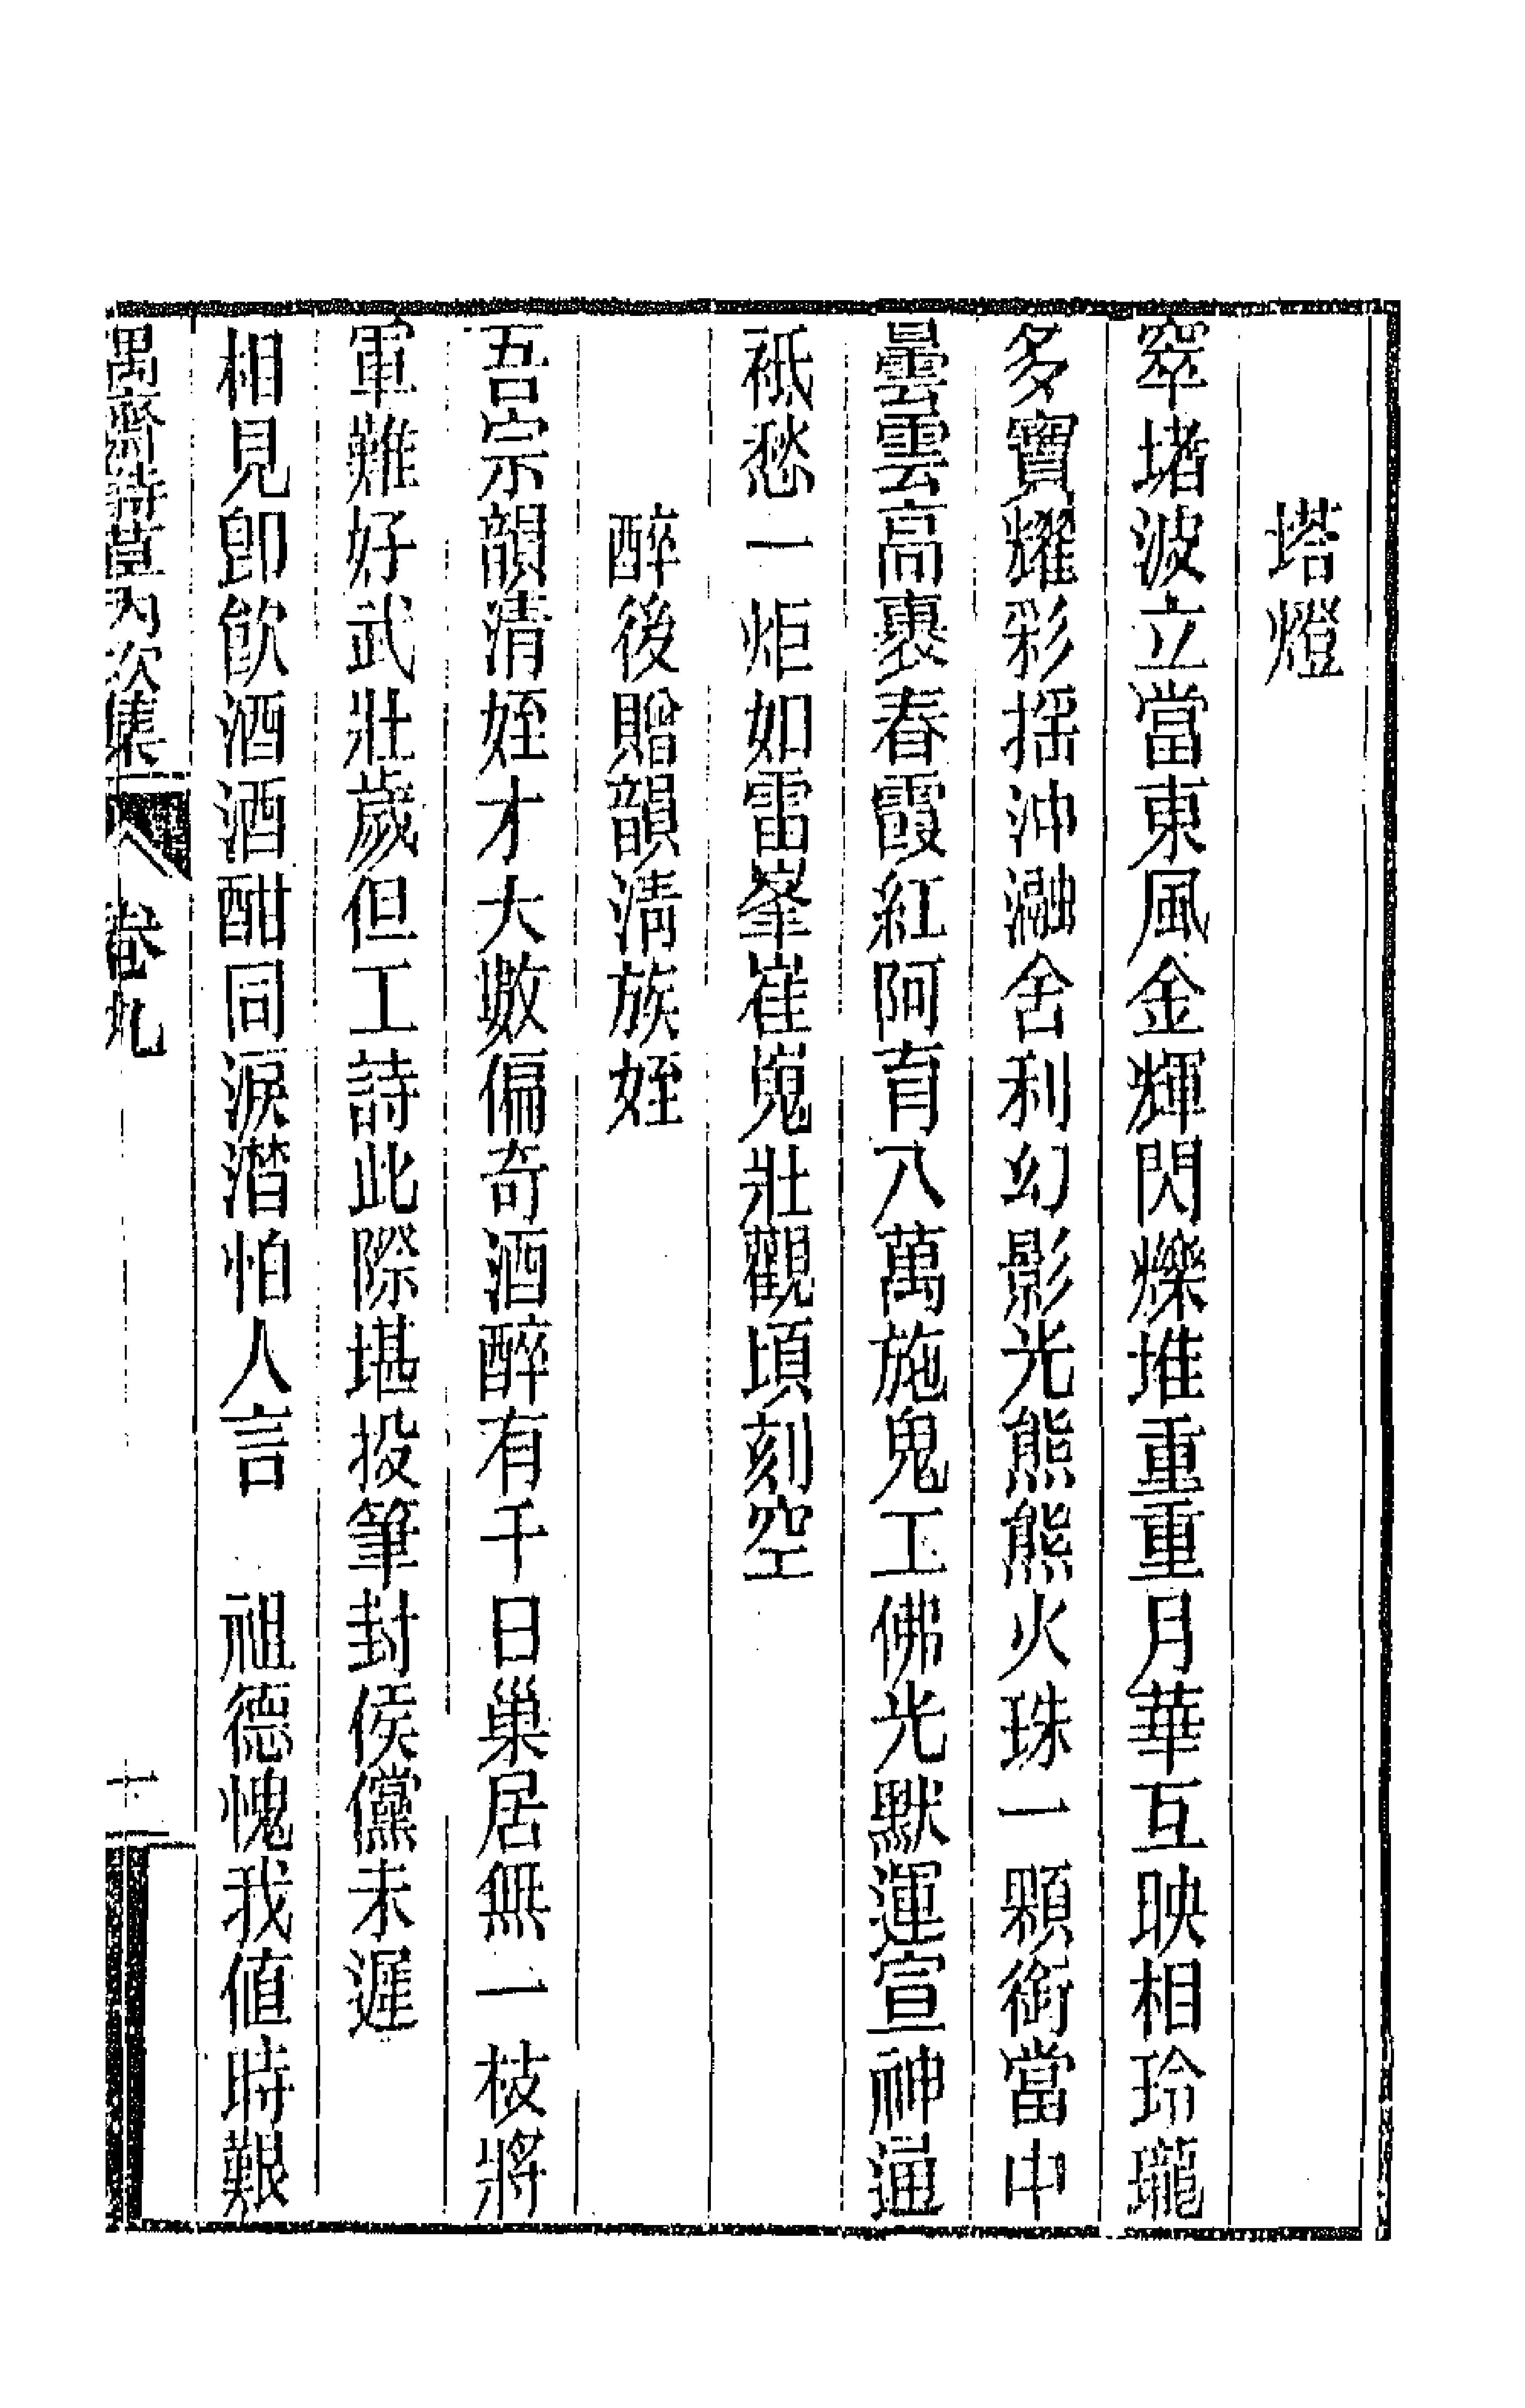 塔燈
窣堵波立當東風金輝閃爍堆重重月華互映相玲瓏
多寶耀彩揺沖瀜舍利幻影光熊熊火珠一顆銜當中
曇雲高裹春霞紅阿育八萬施鬼工佛光默運宣神通
祗愁一炬如雷峯崔嵬壯觀頃刻空
醉後贈韻淸族姪
吾宗韻清姪才大數偏奇酒醉有千日巢居無一枝將
軍難好武壯歲但工詩此際堪投筆封侯儻未遲
相見卽飮酒酒酣同淚潛怕人言　祖德愧我値時艱
禺齋詩草內次集　卷九　十